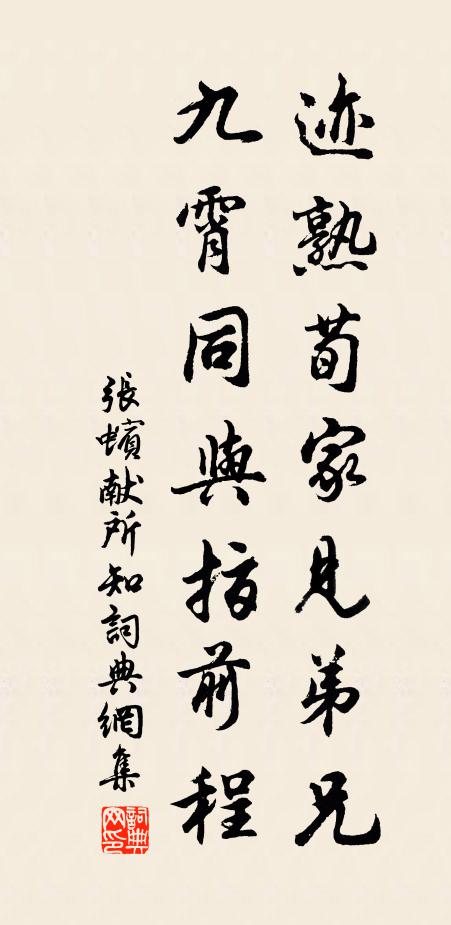 迹熟荀家見弟兄
九霄同與指前程
張蠙献所知詞典網集
詞典网印